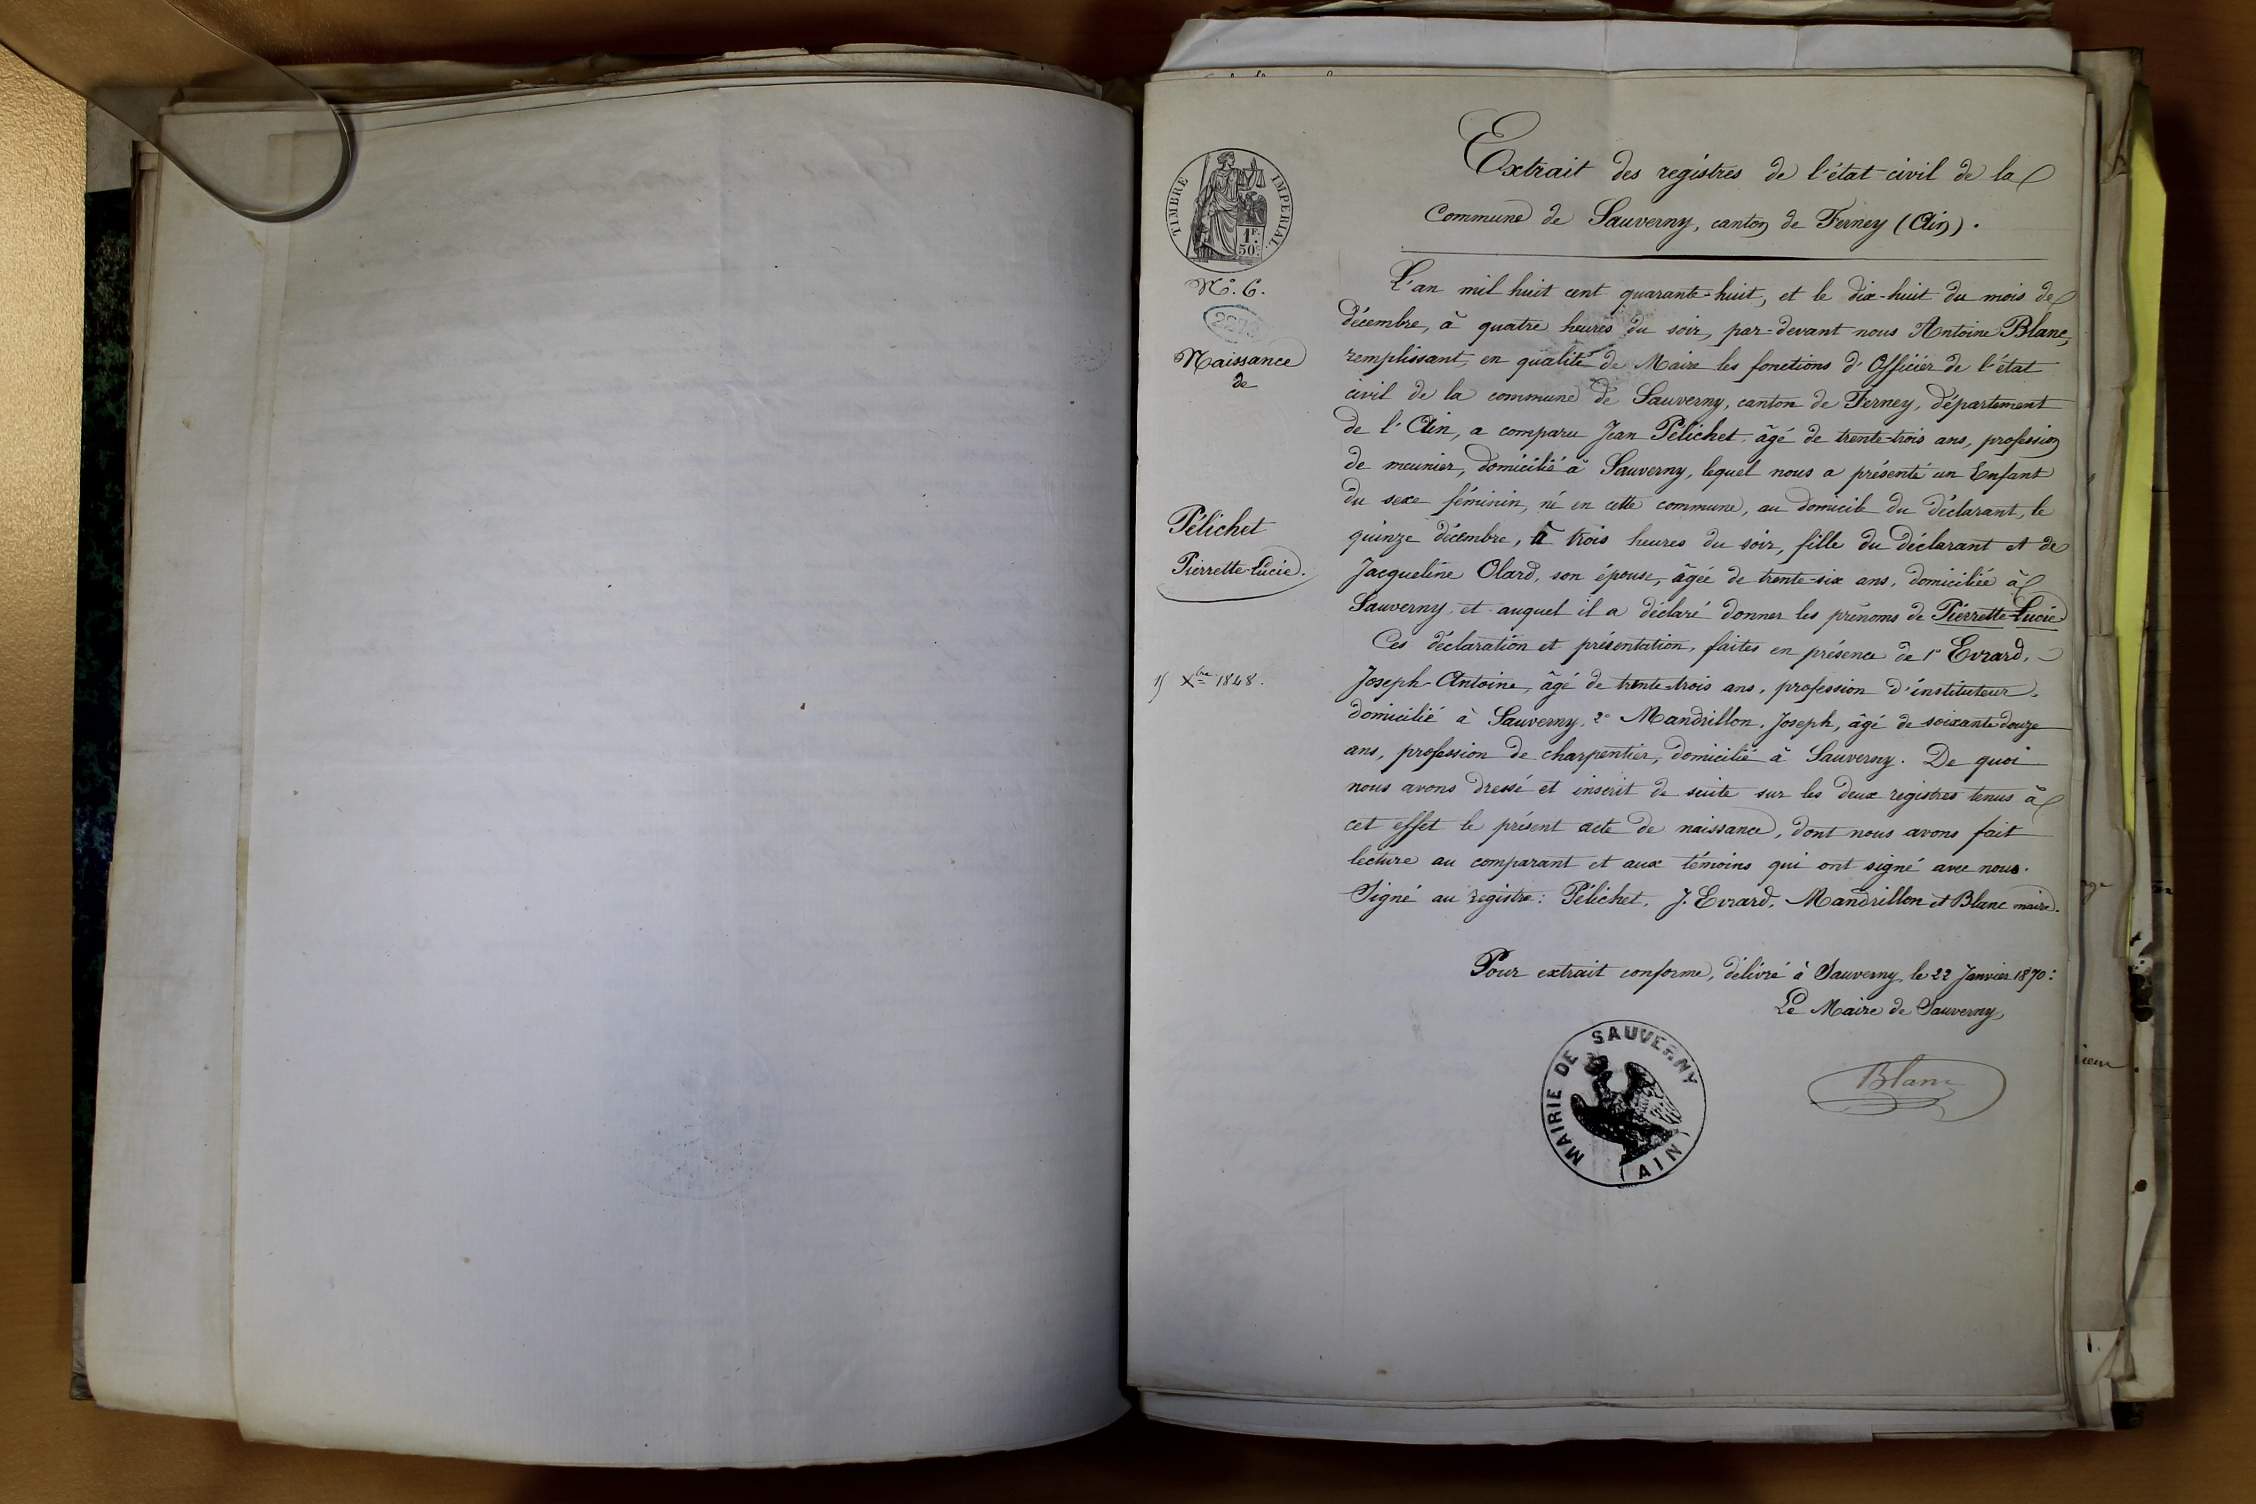 Extrait des registres de l'état-civil de la
Commune de Sauverny, canton de Ferney (Ain).
TIMBRE IMPERIAL
1F.
50c
N°. 6.
Naissance
de
Pélichet
Pierrette-Lucie.
15 Xbre 1848.
L'an mil huit cent quarante-huit, et le dix-huit du mois de
décembre, à quatre heures du soir, par-devant nous Antoine Blanc,
remplissant, en qualité de Maire les fonctions d'Officier de l'état
civil de la commune de Sauverny, canton de Ferney, département
de l'Ain, a comparu Jean Pélichet, âgé de trente-trois ans, profession
de meunier, domicilié à Sauverny, lequel nous a présenté un Enfant
du sexe féminin, né en cette commune, au domicile du déclarant, le
quinze décembre, à trois heures du soir, fille du déclarant et de
Jacqueline Olard, son épouse, âgée de trente-six ans, domiciliée à
Sauverny et auquel il a déclaré donner les prénoms de Pierrette-Lucie
Ces déclaration et présentation, faites en présence de 1° Evrard,
Joseph-Antoine, âgé de trente-trois ans, profession d'instituteur,
domicilié à Sauverny, 2° Mandrillon, Joseph, âgé de soixante-douze
ans, profession de charpentier, domicilié à Sauverny. De quoi
nous avons dressé et inscrit de suite sur les deux registres tenus à
cet effet le présent acte de naissance, dont nous avons fait
lecture au comparant et aux témoins qui ont signé avec nous.
Signé au registre: Pélichet, J. Evrard, Mandrillon et Blanc maire.
Pour extrait conforme, délivré à Sauverny, le 22 Janvier 1870:
Le Maire de Sauverny,
Blanc
MAIRIE DE SAUVERNY
(AIN)